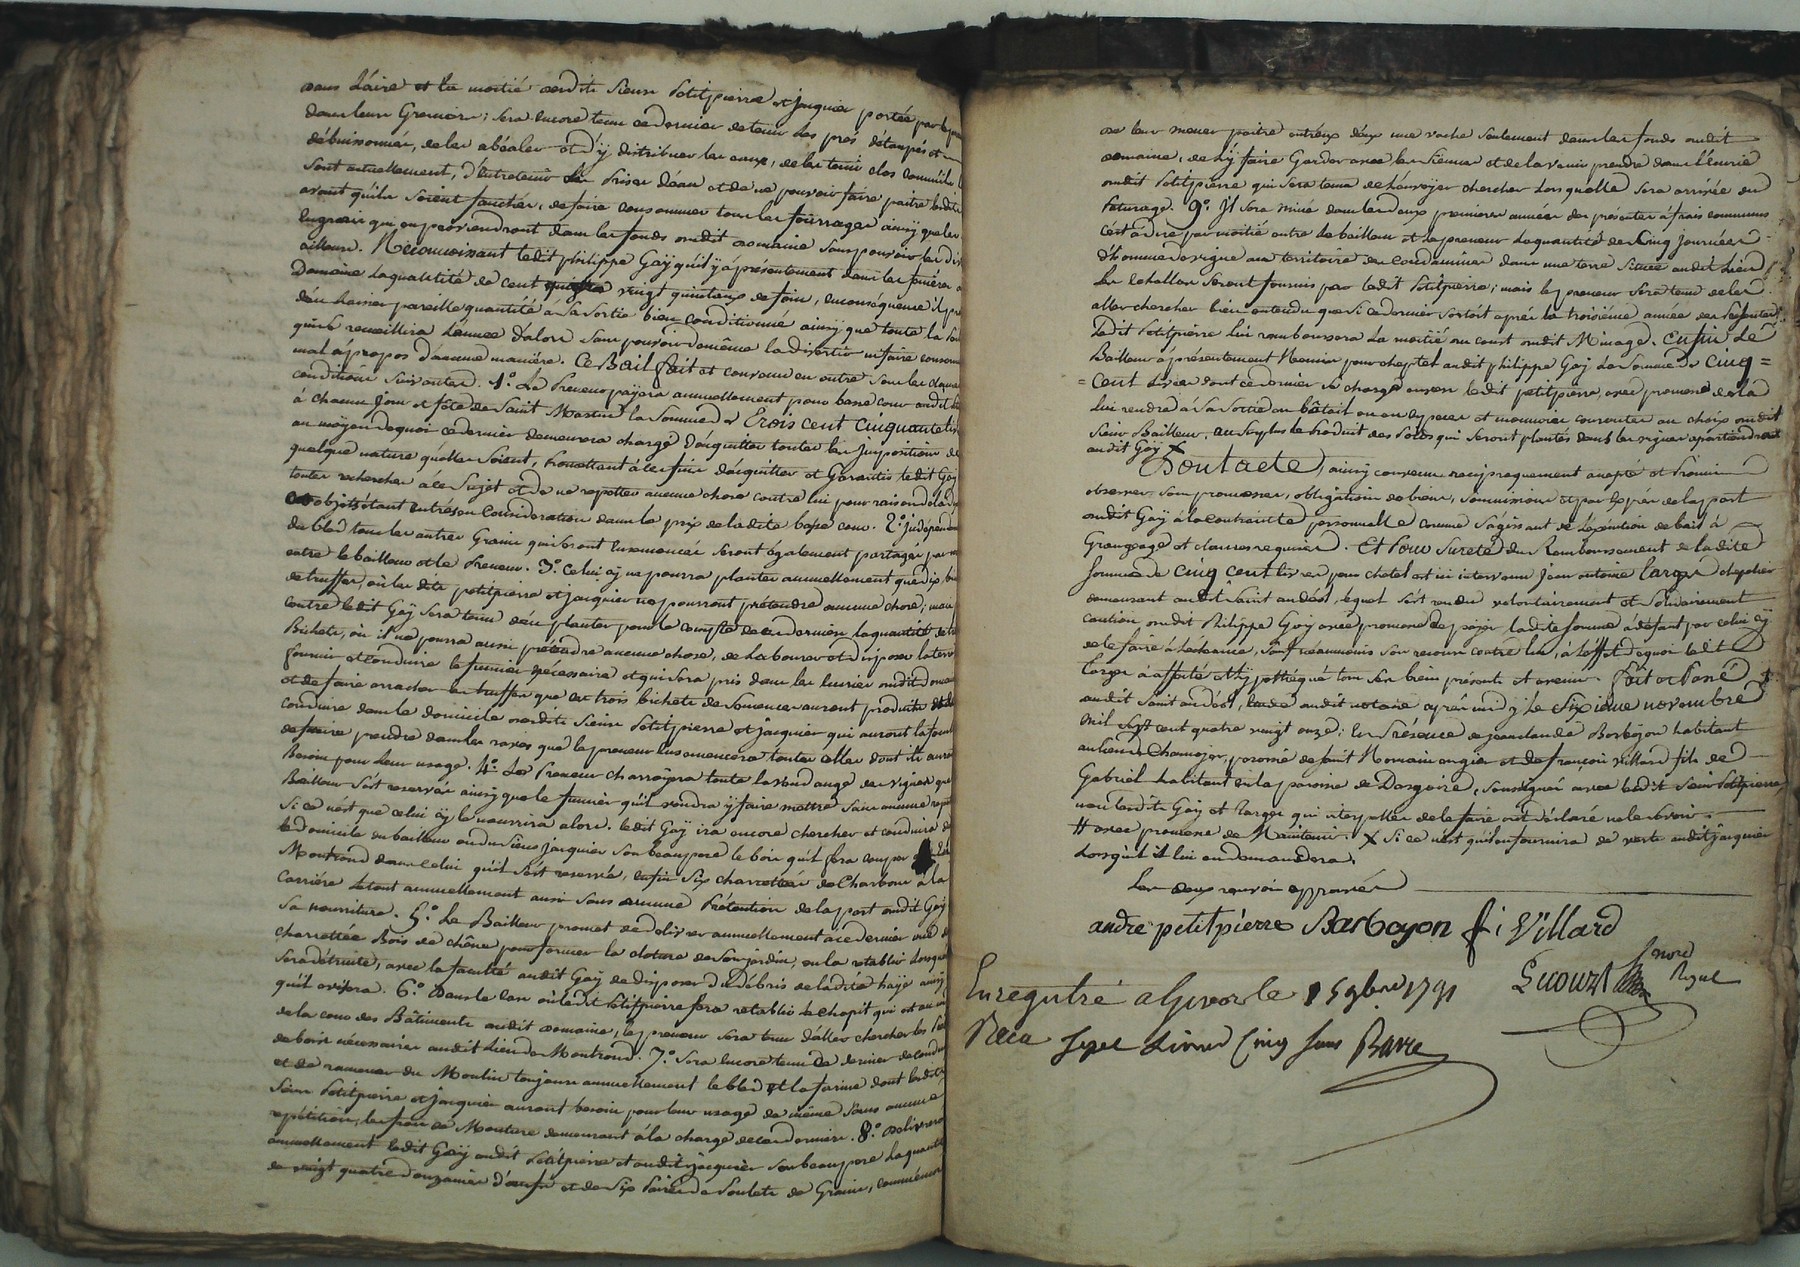 dans l'aire et la moitié desdits sieurs Petitpierre et jaquier portée par le
dans leurs Greniers ; sera encore tenu ce dernier de tenir les prés détaupés et
débuissonnés, de les abéaler et d'y distribuer les eaux, de les tenir clos comme ils
sont actuellement, d'entretenir les prises d'eau et de ne pouvoir faire paitre lesdits
avant qu'ils soient fauchés, de faire consommer tous les fourrages ainsy que les
Engrais qui en proviendront dans les fonds dudit domaine sans pouvoir les
ailleurs. Reconnoissant ledit philippe Gaÿ qu'il y a présentement dans les fenières
Domaine la quantité de cent vingt quintaux de foin, en conséquence il
d'en laisser pareille quantité à sa sortie bien conditionné ainsy que toute la
qu'il recueillira l'année d'alors sans pouvoir de même la divertir ni faire consommer
mal à propos d'aucune manière. Ce Bail fait et convenu en outre sous les
conditions suivantes. 1°. Le Preneur payera annuellement pour basse cour audit
à chacun jour et fête de Saint Martin la somme de Trois cent cinquante
au moyen de quoi ce dernier demeurera chargé d'acquitter toutes les Impositions de
quelque nature qu'elles soient, promettant à les faire acquitter et Garantir ledit Gaÿ
toutes recherches à ce sujet et de ne repetter aucune chose contre lui pour raison de
objets étant entrés en considération dans le prix de ladite basse cour. 2°. jndependam
du bled tous les autres Grains qui seront ensemencés seront également partagés par
entre le bailleur et le Preneur. 3°. Celui cÿ ne pourra planter annuellement que dix
de truffes, où lesdits petitpierre et jaquier ne pourront prétendre aucune chose ; mais
contre ledit Gaÿ sera tenu d'en planter pour le compte de ces derniers la quantité de
Bichets, où il ne pourra aussi prétendre aucune chose, de labourer et disposer la terre
fournir et conduire le fumier nécessaire et qui sera pris dans les écuries dudit
et de faire arracher les truffes que les trois bichets de semence auront produits
conduire dans le domicile desdits sieurs Petitpierre et jaquier qui auront la faculté
de faire prendre dans les raves que le preneur ensemencera toutes celles dont ils auront
Besoin pour leur usage. 4°. Le Preneur charroyera toute la vendange des vignes que
Bailleur s'est reservée ainsy que le fumier qu'il voudra y faire mettre sans aucune
si ce n'est que celui cÿ le nourrira alors. ledit Gaÿ ira encore chercher et conduira
le domicile du bailleur ou du sieur jaquier son beaupere le bois qu'il fera couper
Montrond dans celui qu'il s'est reservé, enfin six charrettées de Charbon à la
carrière le tout annuellement aussi sans aucune Prétention de la part dudit Gaÿ
sa nourriture. 5°. Le Bailleur promet de délivrer annuellement à ce dernier une
charrettée Bois de chêne pour former la cloture de son jardin, ou la rétablir lorsque
sera détruite, avec la faculté audit Gaÿ de disposer du débris de ladite haÿe ainsy
qu'il avisera. 6°. Dans le cas où ledit Petitpierre fera retablir le chapit qui est au
de la cour des Bâtiments dudit domaine, le preneur sera tenu d'aller chercher les
de bois nécessaires audit lieu de Montrond. 7°. Sera encore tenu ce dernier de conduire
et de ramener du Moulin toujours annuellement le bled et la farine dont lesdits
Sieurs Petitpierre et jaquier auront besoin pour leur usage de même sans aucune
repétition, les frais de Mouture demeurant à la charge de ces derniers. 8°. Délivrera
annuellement ledit Gaÿ audit Petitpierre et audit jaquier son beaupere la quantité
de vingt quatre douzaines d'oeufs et de six Paires de Poulets de Grain, comme
de leur mener paitre entr'eux deux une vache seulement dans les fonds dudit
domaine, de l'y faire Garder avec les siennes et de la venir prendre dans l'écurie
dudit Petitpierre qui sera tenu de l'envoyer chercher lorsqu'elle sera arrivée du
Paturage. 9°. Jl sera miné dans les deux premieres années des présentes à frais communs
c'est à dire par moitié entre le bailleur et le preneur la quantité de Cinq journées
d'hommée de vigne au territoire des Condamines dans une terre située audit lieu
les échallats seront fournis par ledit Petitpierre ; mais le preneur sera tenu de les
aller chercher bien entendu que si ce dernier sortoit après la troisième année des présentes
Ledit Petitpierre lui remboursera la moitié du coust dudit Minage. Enfin Le
Bailleur a présentement Remis pour cheptel audit philippe Gaÿ la somme de Cinq =
= Cent Livres dont ce dernier se charge envers ledit petitpierre, avec promesse de la
lui rendre à sa sortie en bétail ou en especes et monnoies courantes au choix dudit
Sieur Bailleur. au surplus le Produit des Pois qui seront plantés dans les vignes apartiendra
audit Gaÿ X Dont acte, ainsy convenu reciproquement accepté et Promis
observer sous promesses, obligations de biens, soumissions et par exprès de la part
dudit Gaÿ à la contrainte personnelle comme s'agissant de l'éxecution de bail à
Grangeage et clauses requises. Et Pour Sureté du Remboursement de ladite
somme de Cinq Cent livres pour chetel est ici intervenu Jean antoine Larger
demeurant audit Saint andéol, lequel s'est rendu volontairement et solidairement
caution dudit Philippe Gaÿ avec promesse de payer ladite somme à défaut par celui cÿ
de le faire à l'échéance, sauf néanmoins son recours contre lui, à l'effet de quoi ledit
Larger a affecté et hypothéqué tous ses biens présents et avenir. Fait et Passé #
audit Saint andéol, étude dudit notaire après midy le Sixieme novembre
mil sept cent quatre vingt onze ; En Présence de jean claude Barbojon habitant
au lieu de Chamojer, paroisse de saint Romain en gier et de françois Villard fils de
Gabriel habitant en la paroisse de Dargoire, soussignés avec ledit Sieur Petitpierre,
non lesdits Gaÿ et Larger qui interpellés de le faire ont déclaré ne le savoir.
# avec promesse de Maintenir. X si ce n'est qu'il en fournira de verts audit jaquier
Lorsqu'il lui en demandera.
Les deux renvois approuvés
andré petitpierre Barbojon f : Villard
Enregistré a Givors le 15 9bre 1791
Recu sept Livres Cinq sous Barre